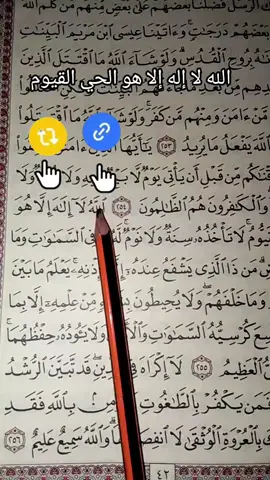 الرُّسُلُ فَضَّلْنَا بَعْضَهُمْ عَلَىٰ بَعْضٍ مِّنْهُم مَّن كَلَّمَ اللَّهُ
بَعْضَهُمْ دَرَجَٰتٍ وَءَاتَيْنَا عِيسَى ابْنَ مَرْيَمَ الْبَيِّنَٰتِ
بِرُوحِ الْقُدُسِ وَلَوْ شَاءَ اللَّهُ مَا اقْتَتَلَ الَّذِينَ
الله لا إله إلا هو الحي القيوم
مَّنْ ءَامَنَ وَمِنْهُم مَّن كَفَرَ وَلَوْ شَاءَ اللَّهُ مَا اقْتَتَلُوا
اللَّهَ يَفْعَلُ مَا يُرِيدُ ٢٥٣ يَٰأَيُّهَا
مِّن قَبْلِ أَن يَأْتِيَ يَوْمٌ لَّا وَلَا
وَالْكَٰفِرُونَ هُمُ الظَّٰلِمُونَ ٢٥٤ اللَّهُ لَا إِلَٰهَ إِلَّا هُوَ
لَا تَأْخُذُهُ سِنَةٌ وَلَا نَوْمٌ لَّهُ فِي السَّمَٰوَٰتِ وَمَا
مَن ذَا الَّذِي يَشْفَعُ عِندَهُ يَعْلَمُ مَا بَيْنَ
وَمَا خَلْفَهُمْ وَلَا يُحِيطُونَ مِّنْ عِلْمِهِ إِلَّا بِمَا
كُرْسِيُّهُ السَّمَٰوَٰتِ وَلَا يَئُودُهُ حِفْظُهُمَا
الْعَظِيمُ ٢٥٥ لَا إِكْرَاهَ فِي قَد تَّبَيَّنَ الرُّشْدُ
فَمَن يَكْفُرْ بِالطَّٰغُوتِ بِاللَّهِ فَقَدِ
بِالْعُرْوَةِ الْوُثْقَىٰ لَا انفِصَامَ وَاللَّهُ سَمِيعٌ عَلِيمٌ ٢٥٦
٤٢